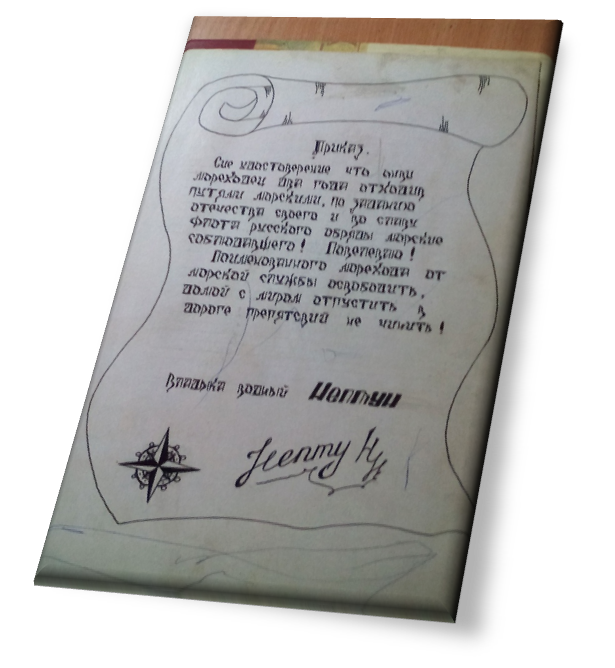 Приказ.
Сие удостоверение что сизи
мореходец два года отходив
путями морскими, по заданию
отечества своего и во славу
флота русского обряды морские
соблюдавшего! Повелеваю!
Поименованного морехода от
морской службы освободить,
домой с миром отпустить в
дороге препятсвий не чинить!
Владыка водный Нептун
Нептун